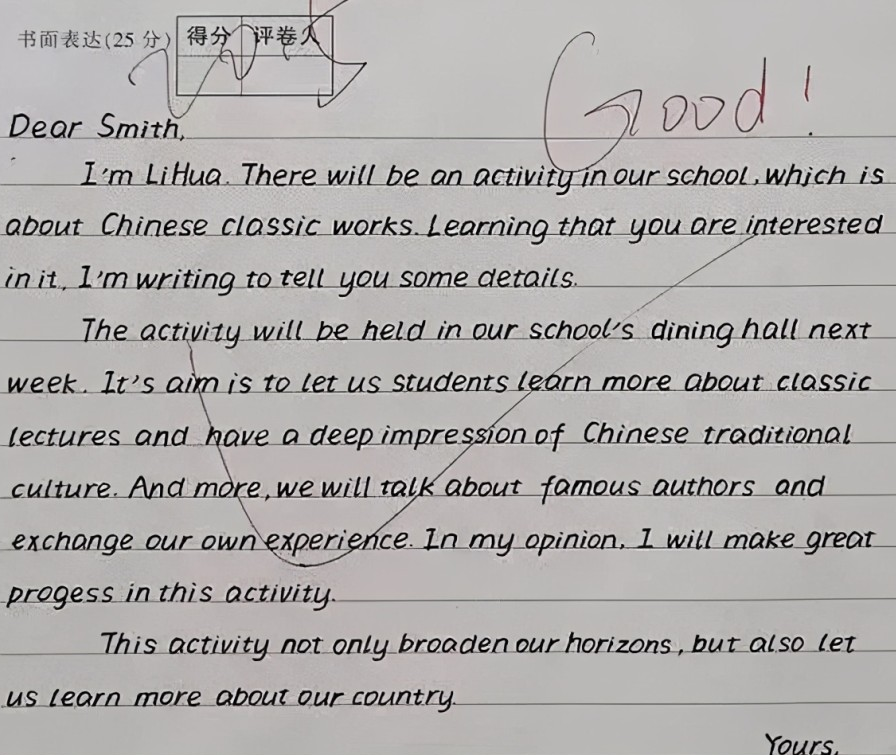 书面表达(25分) 得分 评卷人
Good!
Dear Smith,
I'm LiHua. There will be an activity in our school, which is
about Chinese classic works. Learning that you are interested
in it, I'm writing to tell you some details.
The activity will be held in our school's dining hall next
week. It's aim is to let us students learn more about classic
lectures and have a deep impression of Chinese traditional
culture. And more, we will talk about famous authors and
exchange our own experience. In my opinion, I will make great
progess in this activity.
This activity not only broaden our horizons, but also let
us learn more about our country.
Yours,